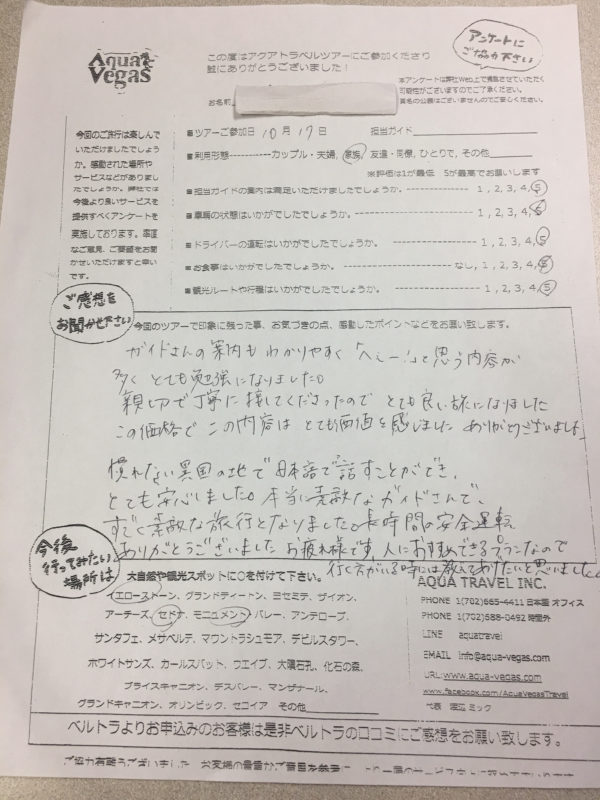 Aqua Vegas
この度はアクアトラベルツアーにご参加くださり
誠にありがとうございました！
アンケートに
ご協力下さい
本アンケートは弊社Web上で掲載させていただく
可能性がございますのでご了承ください。
実名の公表はございませんのでご安心ください。
お名前
今回のご旅行は楽しんで
いただけましたでしょう
か。感動された場所や
サービスなどがありまし
たでしょうか。弊社では
今後より良いサービスを
提供すべくアンケートを
実施しております。率直
なご意見、ご要望をお聞
かせいただけますと幸い
です。
■ツアーご参加日 10月17日 担当ガイド
■利用形態 カップル・夫婦, 家族, 友達・同僚, ひとりで, その他
※評価は1が最低 5が最高でお願いします
■担当ガイドの案内は満足いただけましたでしょうか。 1, 2, 3, 4, 5
■車輌の状態はいかがでしたでしょうか。 1, 2, 3, 4, 5
■ドライバーの運転はいかがでしたでしょうか。 1, 2, 3, 4, 5
■お食事はいかがでしたでしょうか。 なし, 1, 2, 3, 4, 5
■観光ルートや行程はいかがでしたでしょうか。 1, 2, 3, 4, 5
ご感想を
お聞かせ下さい
今回のツアーで印象に残った事、お気づきの点、感動したポイントなどをお願い致します。
ガイドさんの案内もわかりやすく「へぇー!」と思う内容が
多くとても勉強になりました。
親切で丁寧に接してくださったのでとても良い旅になりました
この価格でこの内容はとても価値を感じました ありがとうございました
慣れない異国の地で日本語で話すことができ、
とても安心しました。本当に素敵なガイドさんで、
すごく素敵な旅行となりました。長時間の安全運転
ありがとうございました お疲れ様です 人におすすめできるプランなので
行く方がいる時には教えてあげたいと思いました。
今後
行ってみたい
場所は
大自然や観光スポットに○を付けて下さい。
イエローストーン、グランドティートン、ヨセミテ、ザイオン、
アーチーズ、セドナ、モニュメントバレー、アンテロープ、
サンタフェ、メサベルデ、マウントラシュモア、デビルスタワー、
ホワイトサンズ、カールスバット、ウエイブ、大隕石孔、化石の森、
ブライスキャニオン、デスバレー、マンザナール、
グランドキャニオン、オリンピック、セコイア その他
AQUA TRAVEL INC.
PHONE 1(702)665-4411 日本語 オフィス
PHONE 1(702)588-0492 時間外
LINE aquatravel
EMAIL info@aqua-vegas.com
URL:www.aqua-vegas.com
www.facebook.com/AquaVegasTravel
代表 渡辺 ミック
ベルトラよりお申込みのお客様は是非ベルトラの口コミにご感想をお願い致します。